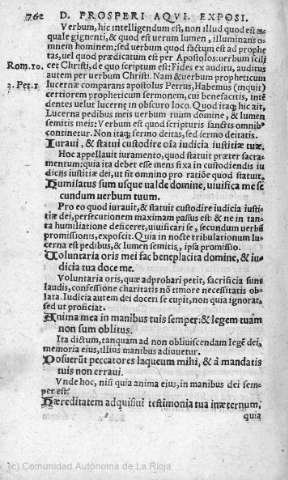 762 D. PROSPERI AQVI. EXPOSI.
Verbum, hic intelligendum est, non illud quod est æ-
quale gignenti, & quod est uerum lumen, illuminans o-
mnem hominem; sed uerbum quod factum est ad prophe
tas, uel quod prædicatum est per Apostolos: uerbum scili
Rom.10. cet Christi, de quo scriptum est: Fides ex auditu, auditus
autem per uerbum Christi. Nam & uerbum propheticum
2. Pet.1 lucernæ comparans apostolus Petrus, Habemus (inquit)
certiorem propheticum sermonem, cui benefacitis, inté
dentes uelut lucernę in obscuro loco. Quod itaq; hic ait,
Lucerna pedibus meis uerbum tuum domine, & lumen
semitis meis: Verbum est quod scripturis sanctis omnib⁹
continetur. Non itaq; sermo deitas, sed sermo deitatis.
Iuraui, & statui custodire oía iudicia iustitiæ tuæ.
Hoc appellauit iuramento, quod statuit præter sacra-
mentum: quia ita debet esse mens fixa in custodiendis iu
dicijs iustitiæ dei, ut sit omnino pro ratióe quod statuit.
Humiliatus sum usque ualde domine, uiuifica me se
cundum uerbum tuum.
Pro eo quod iurauit, & statuit custodire iudicia iusti-
tiæ dei, persecutionem maximam passus est: & ne in tan-
ta humiliatione deficeret, uiuificari se, secundum uerbũ
promissionis, exposcit. Quia in nocte tribulationum lu-
cerna est pedibus, & lumen semitis, ipsa promissio.
Voluntaria oris mei fac beneplacita domine, & iu-
dicia tua doce me.
Voluntaria oris, quæ adprobari petit, sacrificia sunt
laudis, confessione charitatis nó timore necessitatis ob-
lata. Iudicia autem dei doceri se cupit, non quia ignorat,
sed ut proficiat.
Anima mea in manibus tuis semper: & legem tuám
non sum oblitus.
Ita dictum, tanquam ad non obliuiscendam legé dei,
memoria eius, illius manibus adiuuetur.
Posuerũt peccatores laqueum mihi, & à mandatis
tuis non erraui.
Vnde hoc, nisi quia anima eius, in manibus dei sem-
per est?
Hæreditatem adquisiui testimonia tua in æternum,
quia
(c) Comunidad Autónoma de La Rioja